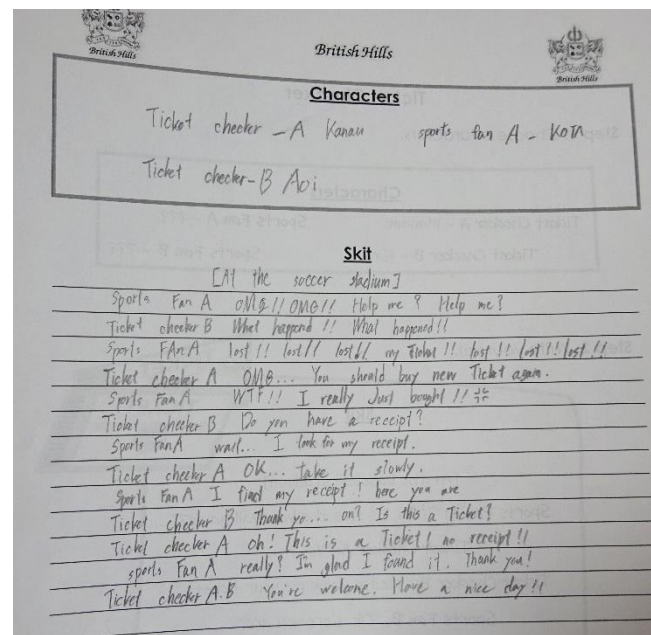 British Hills
British Hills
British Hills
Characters
Ticket checker - A Kanau sports fan A - KOTA
Ticket checker - B Aoi
Skit
[At the soccer stadium]
Sports Fan A OMG!! OMG!! Help me? Help me?
Ticket checker B What happend!! What happened!!
Sports FAn A lost!! lost!! lost!! my Ticket!! lost!! lost!! lost!!
Ticket checker A OMG... You should buy new Ticket again.
Sports Fan A WTF!! I really Just bought!!
Ticket checker B Do you have a receipt?
Sports Fan A wait... I look for my receipt.
Ticket checker A OK... take it slowly.
Sports Fan A I find my receipt! here you are
Ticket checker B Thank yo... on? Is this a Ticket?
Ticket checker A oh! This is a Ticket! no receipt!!
sports Fan A really? I'm glad I found it. Thank you!
Ticket checker A.B You're welcome. Have a nice day!!